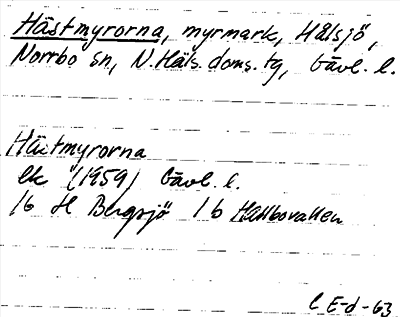 Hästmyrorna, myrmark, Hålsjö,
Norrbo sn, N. Häls. doms. tg, Gävl. l.
Hästmyrorna
ek (1959) Gävl. l.
16 H Bergsjö 1 b Hallbovallen
E-d-63